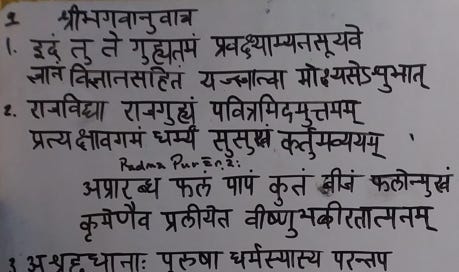 १ श्रीभगवानुवाच
1. इदं तु ते गुह्यतमं प्रवक्ष्याम्यनसूयवे
ज्ञानं विज्ञानसहितं यज्ज्ञात्वा मोक्ष्यसेऽशुभात्
2. राजविद्या राजगुह्यं पवित्रमिदमुत्तमम्
प्रत्यक्षावगमं धर्म्यं सुसुखं कर्तुमव्ययम्
Padma Purāṇa:
अप्रारब्ध फलं पापं कुतं बीजं फलोन्मुखं
कृमेणैव प्रलीयेत वीष्णुभक्तीरतात्मनम्
3 अश्रद्दधानाः पुरुषा धर्मस्यास्य परन्तप